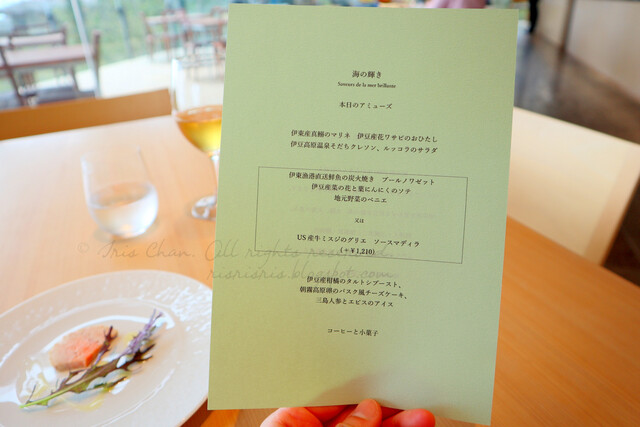 海の輝き
Saveurs de la mer brillante
本日のアミューズ
伊東産真鯵のマリネ 伊豆産花ワサビのおひたし
伊豆高原温泉そだちクレソン、ルッコラのサラダ
伊東漁港直送鮮魚の炭火焼き ブールノワゼット
伊豆産菜の花と葉にんにくのソテ
地元野菜のベニエ
又は
US産牛ミスジのグリエ ソースマディラ
(+¥1,210)
伊豆産柑橘のタルトシブースト、
朝霧高原のバスク風チーズケーキ、
三島人参とエピスのアイス
コーヒーと小菓子
© Iris Chan. All rights reserved.
risrisris.blogspot.com